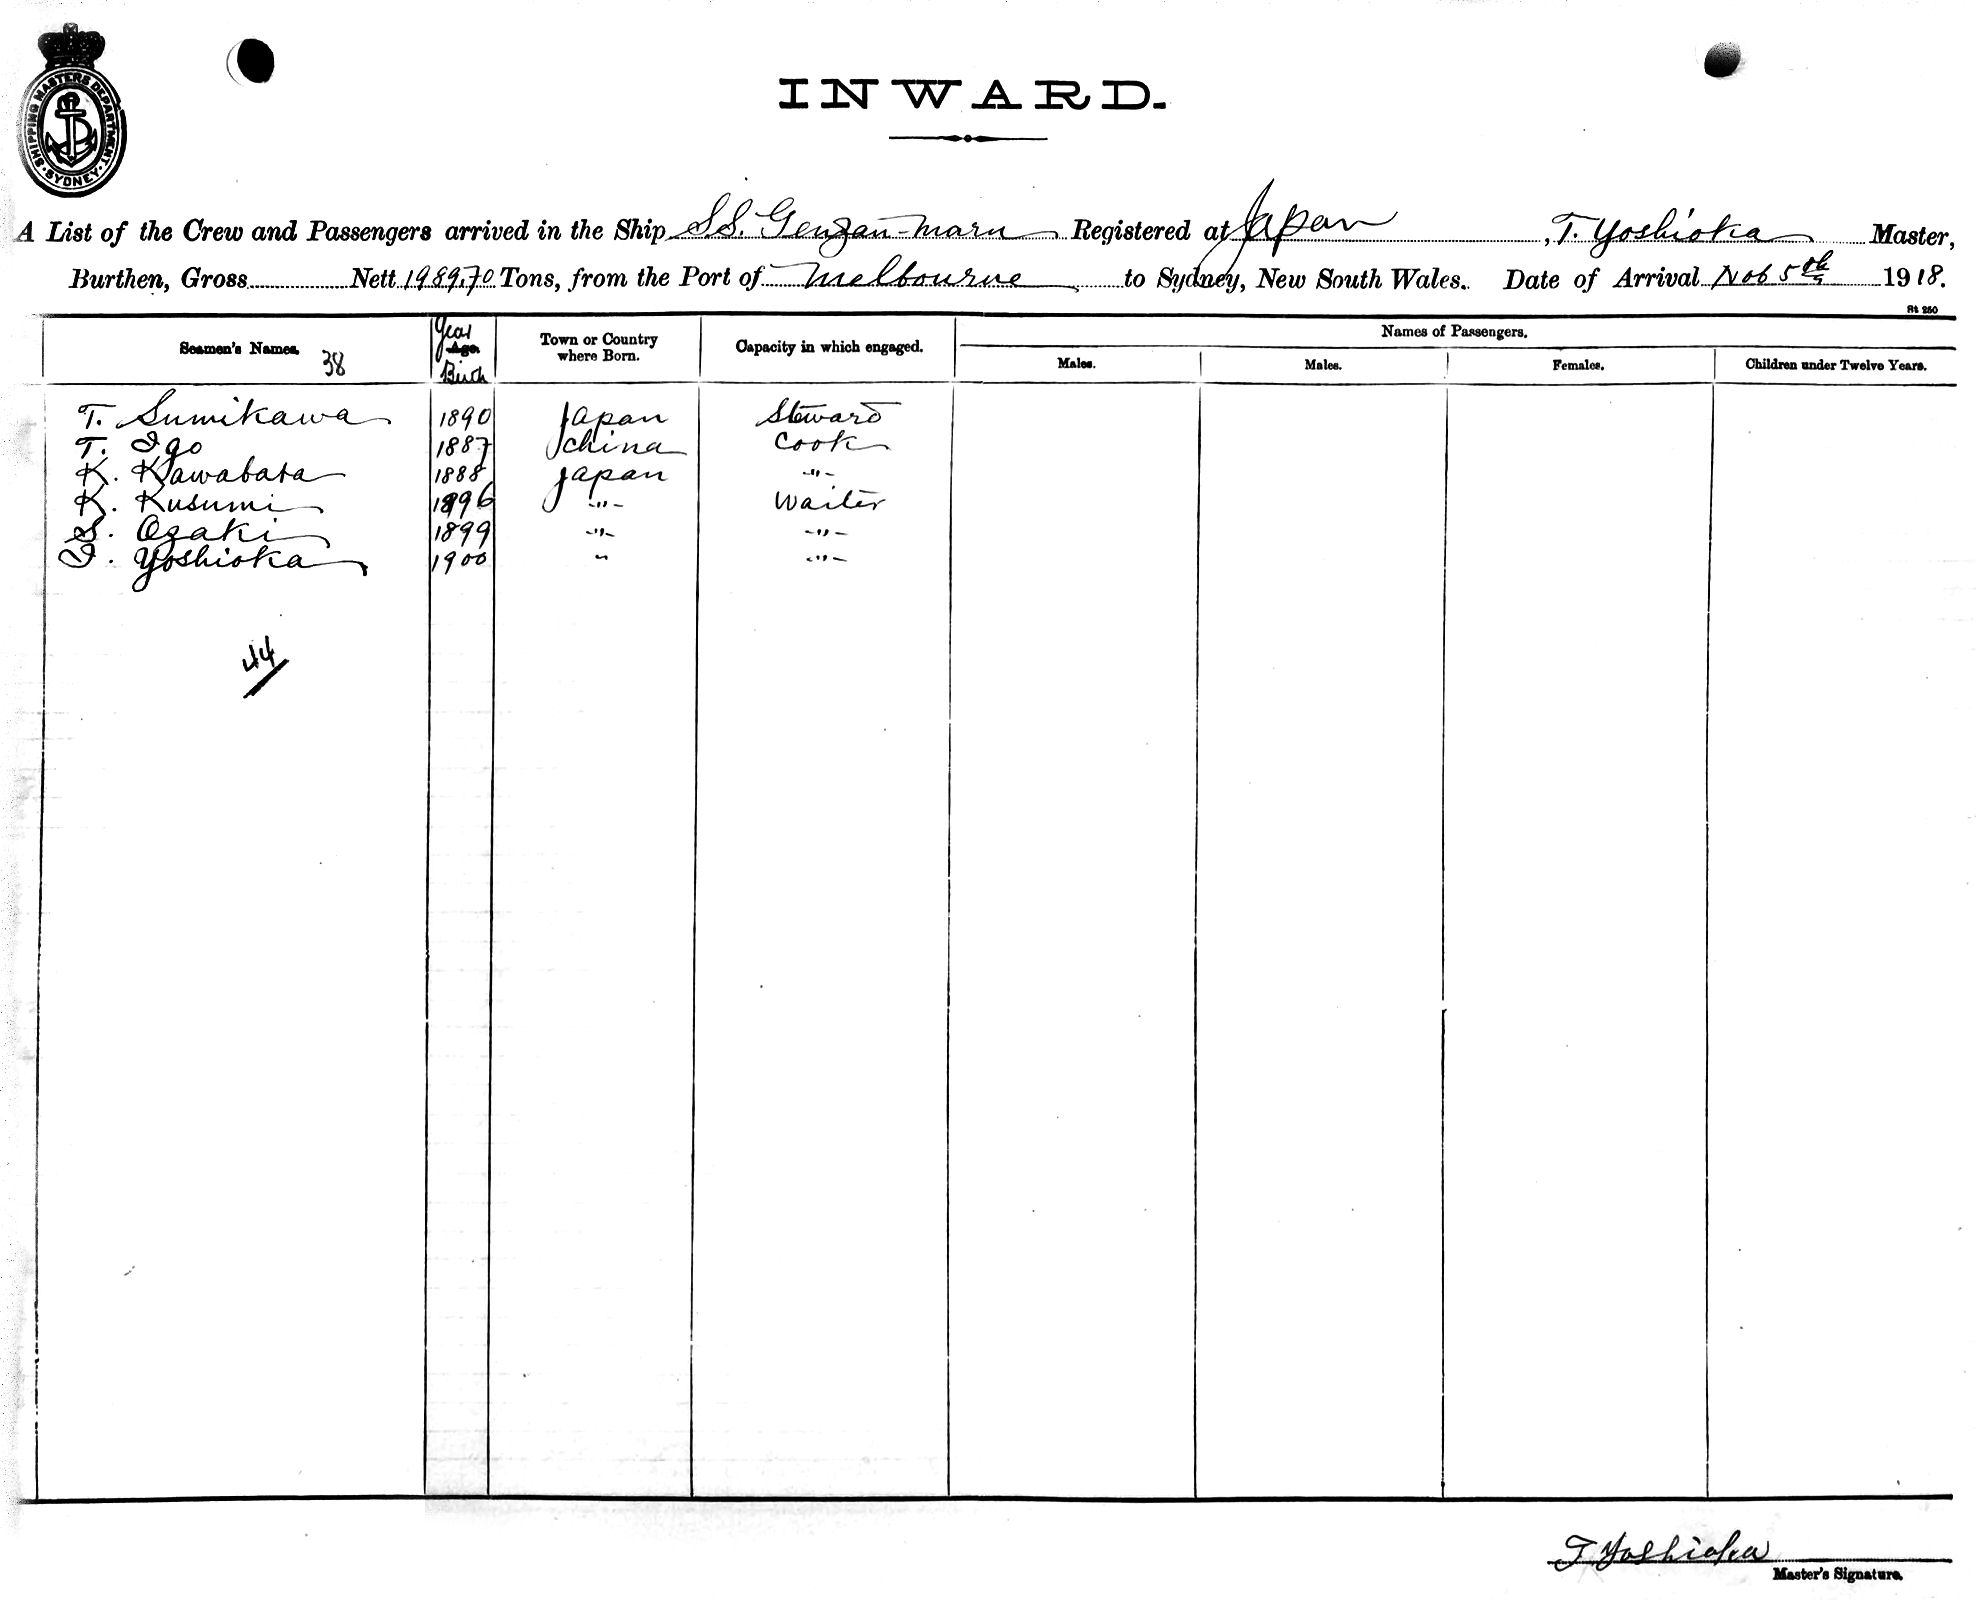 SHIPPING MASTERS DEPARTMENT
SYDNEY
INWARD.
A List of the Crew and Passengers arrived in the Ship S.S. Genzan-maru Registered at Japan, T. Yoshioka Master,
Burthen, Gross Nett 1989.70 Tons, from the Port of Melbourne to Sydney, New South Wales. Date of Arrival Nob 5th 1918.
St 250
Seamen's Names. 38 Year Age. Birth Town or Country where Born. Capacity in which engaged. Names of Passengers.
Males. Males. Females. Children under Twelve Years.
T. Sumikawa 1890 Japan Steward
T. Igo 1887 China Cook
K. Kawabata 1888 Japan -"-
K. Kusumi 1896 -"- Waiter
S. Ozaki 1899 -"- -"-
I. Yoshioka 1900 " -"-
44
T Yoshioka
Master's Signature.